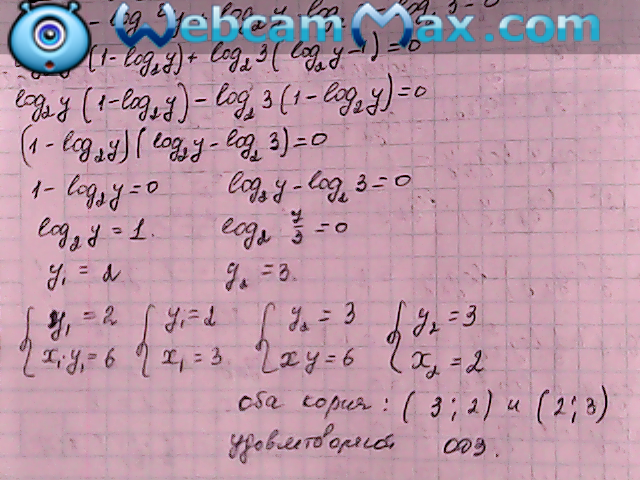 WebcamMax.com
(1-log₂y)+log₂3(log₂y-1)=0
log₂y(1-log₂y)-log₂3(1-log₂y)=0
(1-log₂y)(log₂y-log₂3)=0
1-log₂y=0 log₂y-log₂3=0
log₂y=1. log₂ y/3=0
y₁=2 y₂=3.
{ y₁=2 { y₁=2 { y₂=3 { y₂=3
x₁·y₁=6 x₁=3 xy=6 x₂=2
оба корня: (3;2) и (2;3)
удовлетворяют ОДЗ.